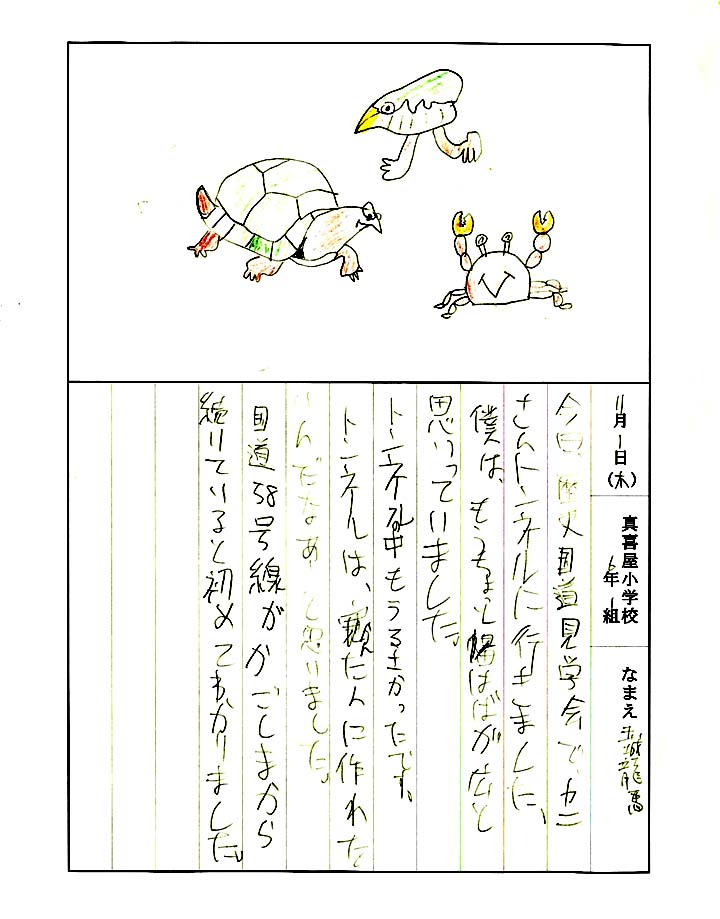 11月1日(木)
真喜屋小学校
6年1組
なまえ 玉城龍馬
今日、歴史国道見学会で、カニ
さんトンネルに行きました、
僕は、もうちょっと幅はばが広と
思いっていました。
トンネル中もうるさかったです。
トンネルは、 た人に作れた
んだなあ と思いました。
国道58号線がかごしまから
続けていると初めてわかりました。